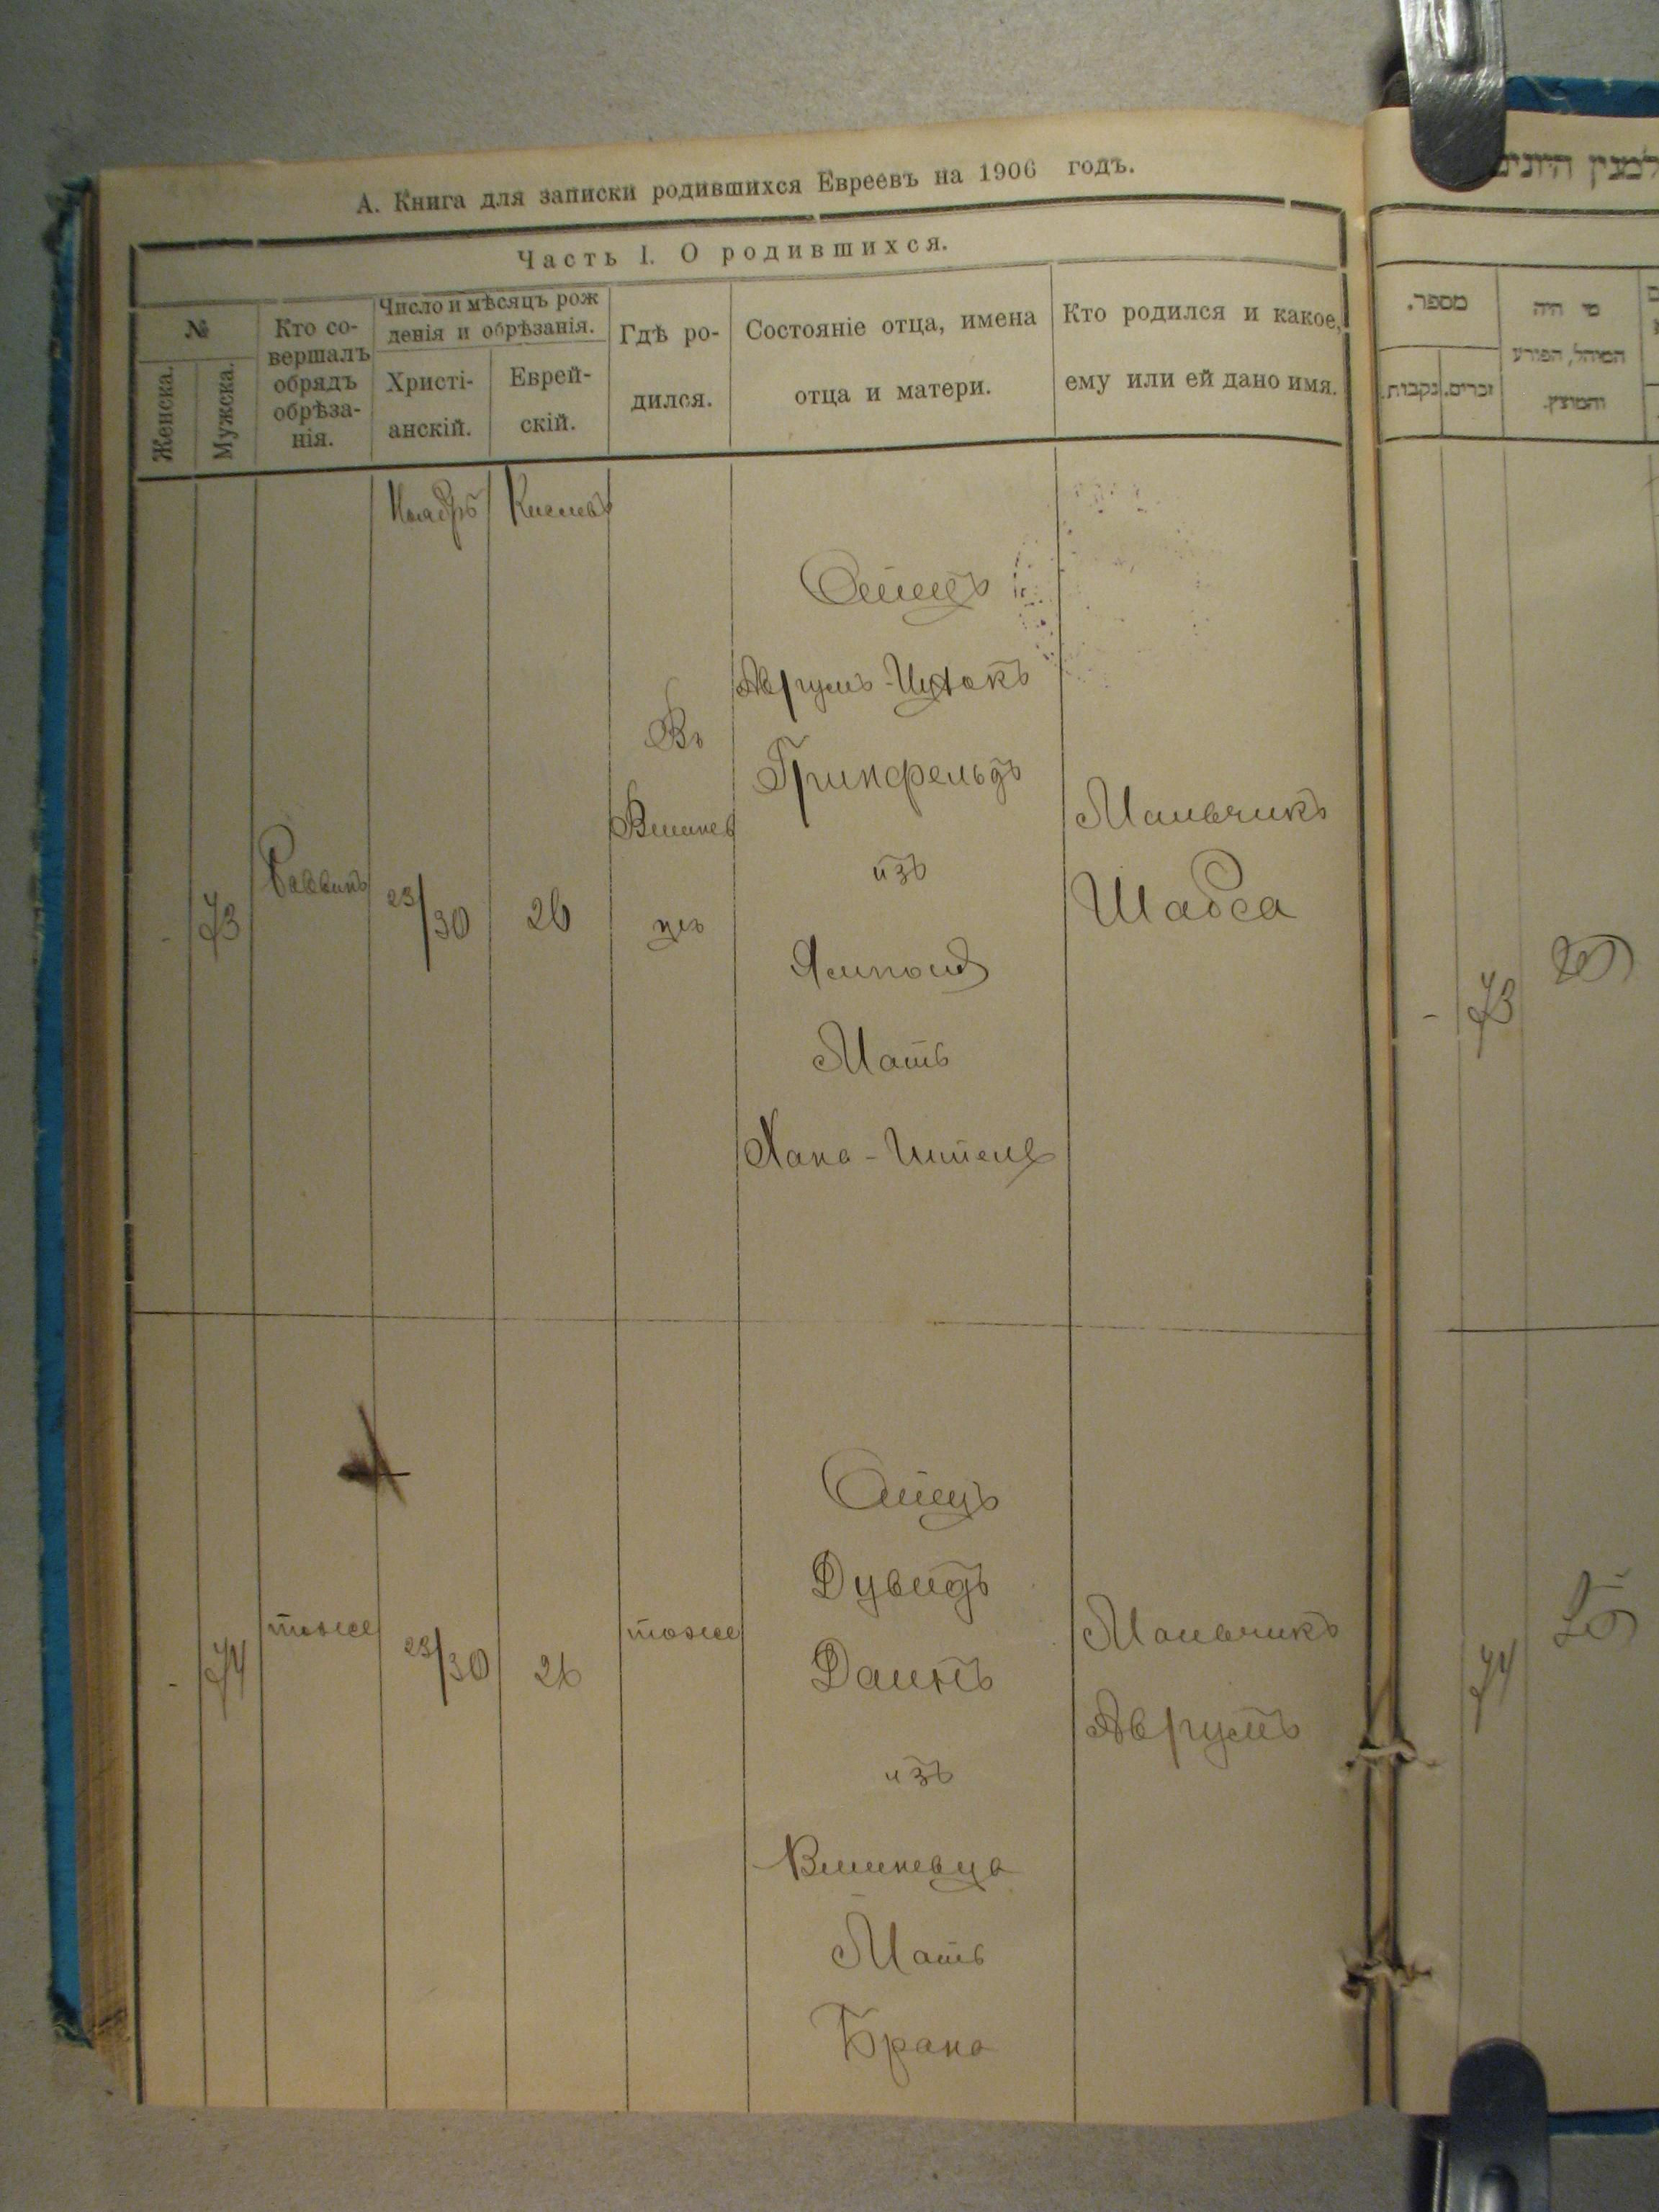 А. Книга для записки родившихся Евреевъ на 1906 годъ.
Часть I. О родившихся.
№
Женска.
Мужска.
Кто со-
вершалъ
обрядъ
обрѣза-
нія.
Число и мѣсяцъ рож
денія и обрѣзанія.
Христі-
анскій.
Еврей-
скій.
Гдѣ ро-
дился.
Состояніе отца, имена
отца и матери.
Кто родился и какое,
ему или ей дано имя.
Ноябрь
Кислевъ
-
73
Раввинъ
23/30
26
Въ
Вишнев
цѣ
Отецъ
Аврумъ-Ицхокъ
Гринфельдъ
изъ
Мать
Хана-
Мальчикъ
Шабса
-
74
тоже
23/30
26
тоже
Отецъ
Дувидъ
изъ
Вишневца
Мать
Мальчикъ
Аврумъ
מספר.
נקבות.
זכרים.
מי היה
המוהל, הפורע
והמוצץ.
-
73
74